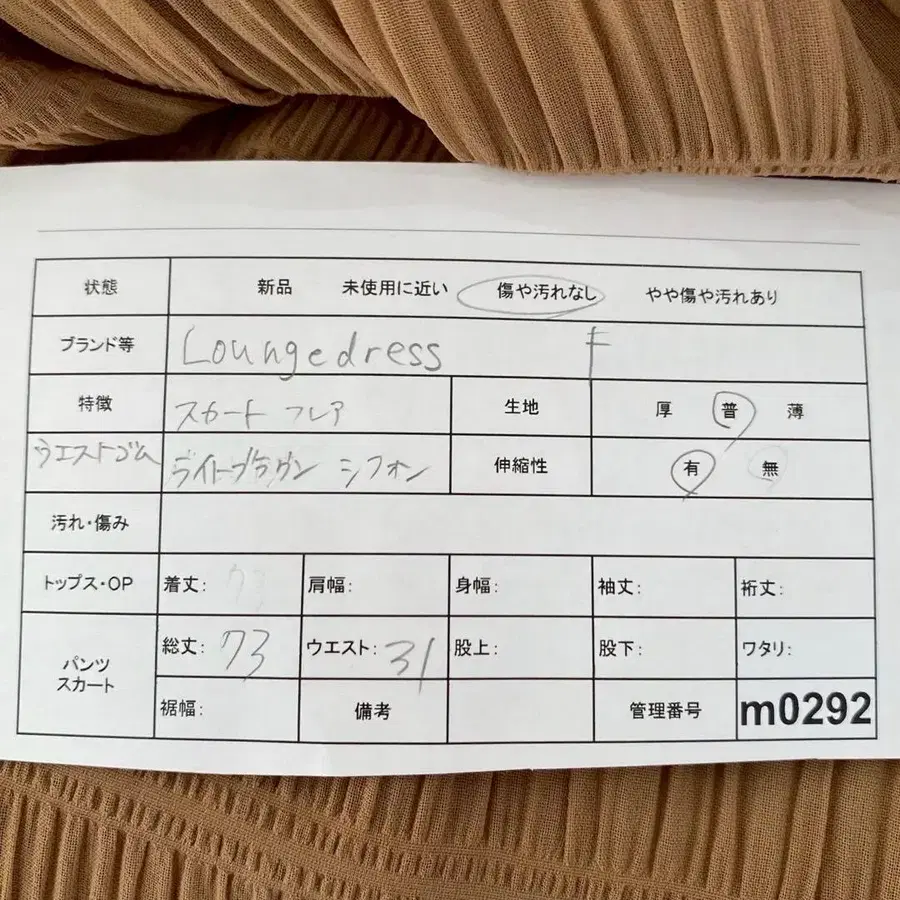 状態 新品 未使用に近い 傷や汚れなし やや傷や汚れあり
ブランド等 Loungedress F
特徴 スカート フレア 生地 厚 普 薄
ウエストゴム ライトブラウン シフォン 伸縮性 有 無
汚れ・傷み
トップス・OP 着丈: 73 肩幅: 身幅: 袖丈: 裄丈:
パンツ スカート 総丈: 73 ウエスト: 31 股上: 股下: ワタリ:
裾幅: 備考 管理番号 m0292